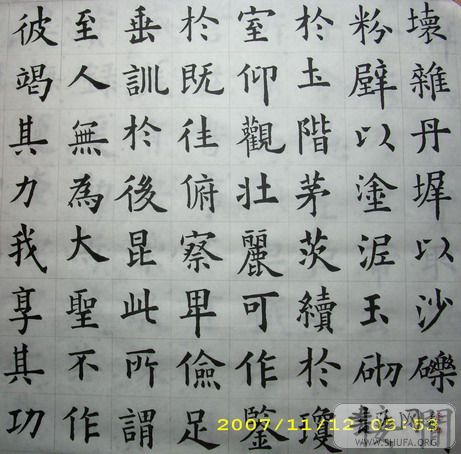 壞雜丹墀以沙礫
粉壁以塗泥玉砌
於土階茅茨續於瓊
室仰觀壯麗可作鍳
於既往俯察卑儉足
垂訓於後昆此所謂
至人無為大聖不作
彼竭其力我享其功
2007/11/12 05:53
WWW.SHUFA.ORG